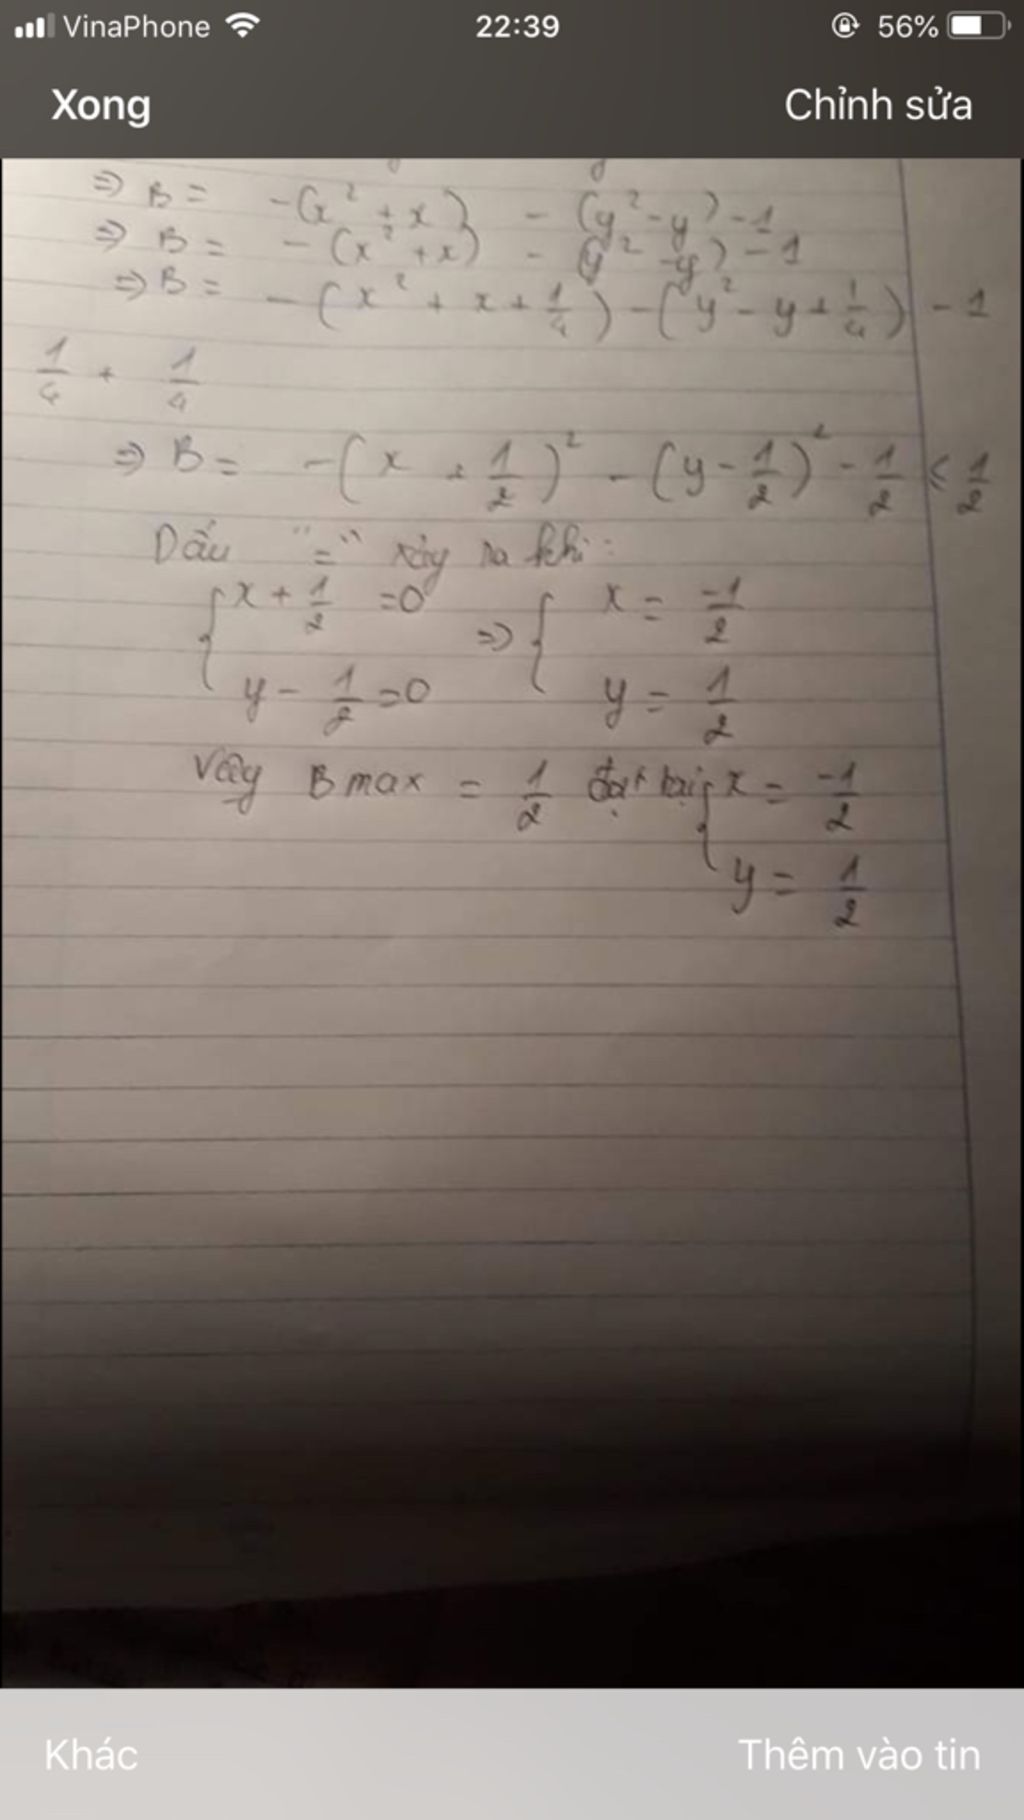 VinaPhone 22:39 56%
Xong Chỉnh sửa
⇒ B = -(x² + x) - (y² - y) - 1
⇒ B = -(x² + x) - (y² - y) - 1
⇒ B = -(x² + x + 1/4) - (y² - y + 1/4) - 1
1/4 + 1/4
⇒ B = -(x + 1/2)² - (y - 1/2)² - 1/2 ≤ 1/2
Dấu "=" xảy ra khi:
{ x + 1/2 = 0 ⇒ { x = -1/2
y - 1/2 = 0 y = 1/2
Vậy B max = 1/2 đạt tại { x = -1/2
y = 1/2
Khác Thêm vào tin